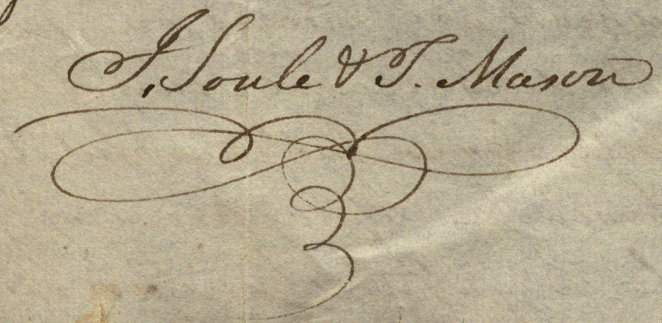 J. Soule & T. Mason